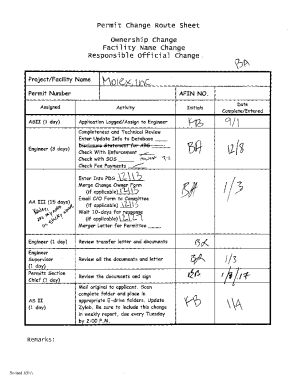 Permit Change Route Sheet
Ownership Change
Facility Name Change
Responsible Official Change
BA
Project/Facility Name Molex, inc
Permit Number AFIN NO.
Assigned Activity Initials Date Complete/Entered
ASII (1 day) Application Logged/Assign to Engineer KB 9/1
Engineer (3 days)
Completeness and Technical Review
Enter Update Info to Database
Disclosure Statement for ABG
Check With Enforcement
Check with SOS
Check Fee Payments
BA 12/8
AA III (19 days)
Enter Into PDS 12/13
Merge Change Owner Form
(if applicable) 12/13
Email C/O Form to Committee
(if applicable) 12/13
Wait 10-days for response
(if applicable) 12/27
Merger Letter for Permittee
BA 1/3
Engineer (1 day) Review transfer letter and documents BA
Engineer Supervisor (1 day) Review all the documents and letter 1/3
Permits Section Chief (1 day) Review the documents and sign
AS II (1 day)
Mail original to applicant. Scan
complete folder and place in
appropriate E-drive folders. Update
Zylab. Be sure to include this change
in weekly report, due every Tuesday
by 2:00 P.M.
KB
Remarks: